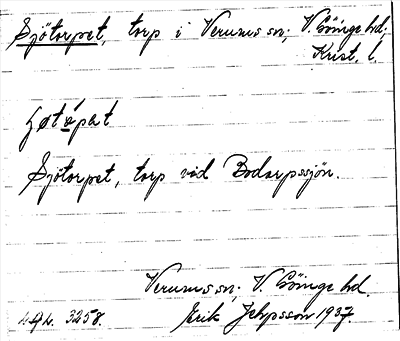 Sjötorpet, torp i Verums sn; V. Göinge hd;
Krist. l.
Sjötorpet, torp vid Bodarpssjön.
Verums sn; V. Göinge hd.
3258. Erik Jeppsson 1937.